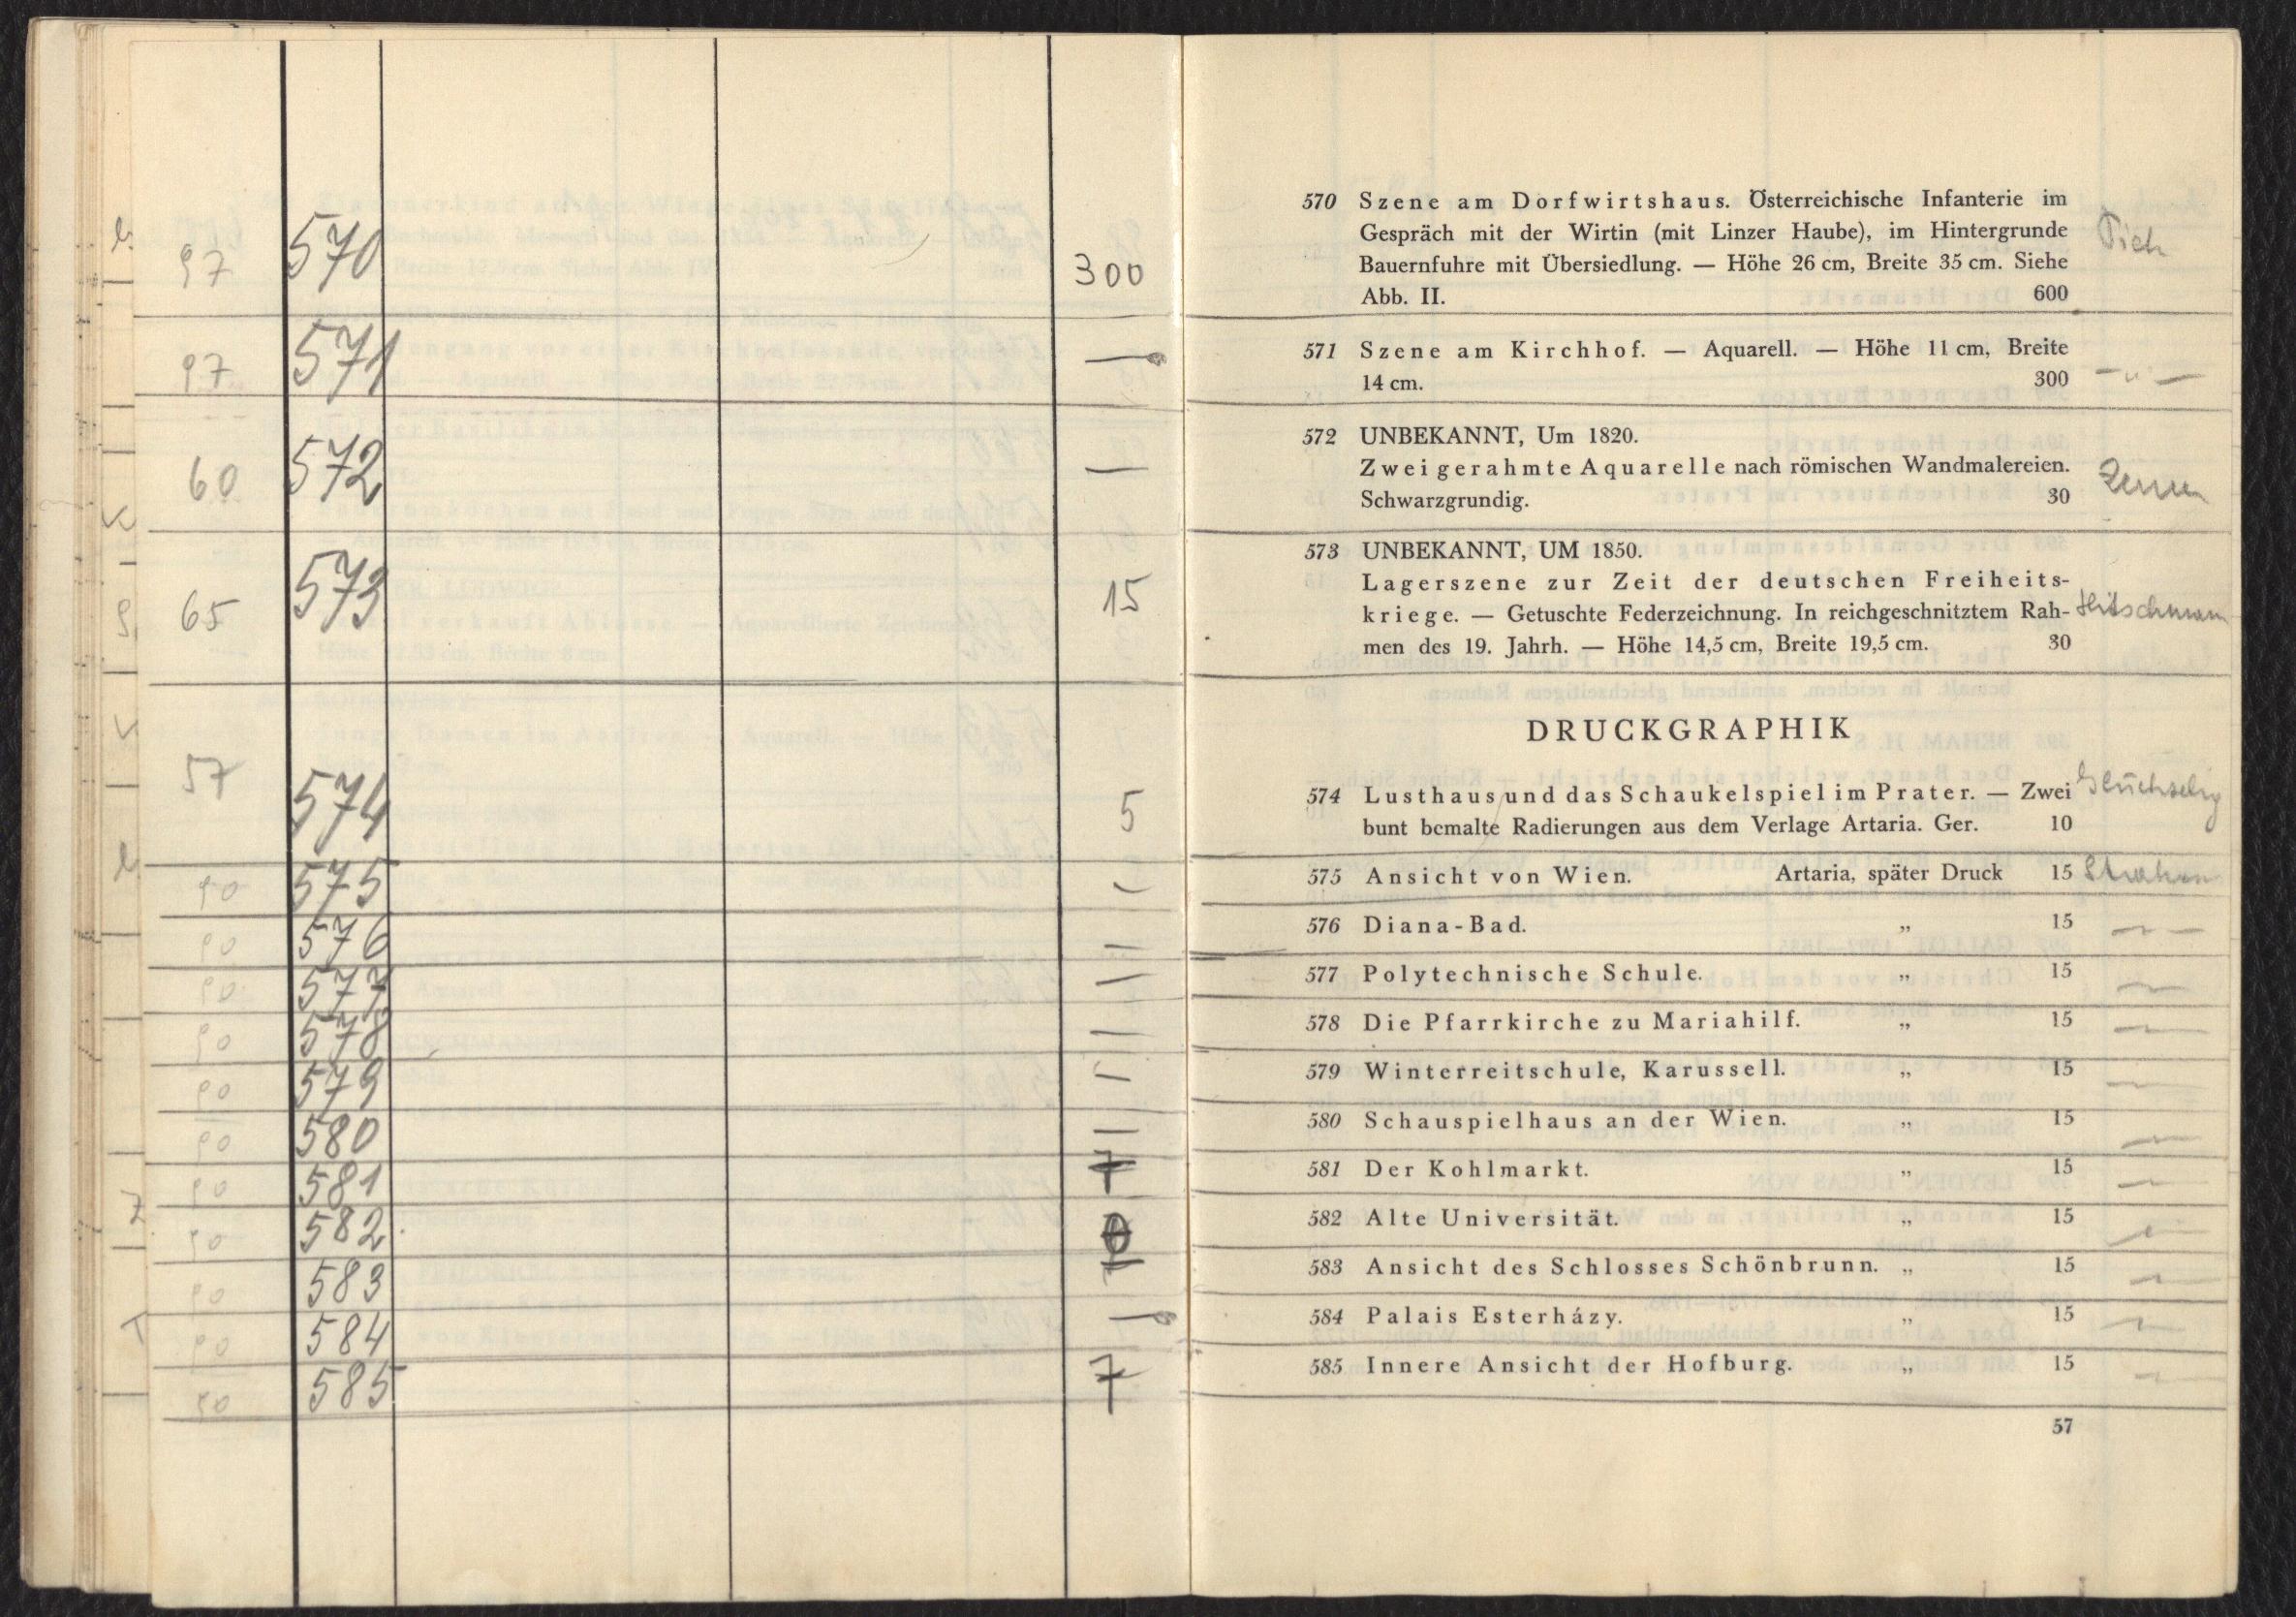 97 570 300
97 571 —
60 572 —
65 573 15
57 574 5
90 575 —
90 576 —
90 577 —
90 578 —
90 579 —
90 580 —
90 581 7
90 582
90 583
90 584 —
90 585 7
570 Szene am Dorfwirtshaus. Österreichische Infanterie im
Gespräch mit der Wirtin (mit Linzer Haube), im Hintergrunde
Bauernfuhre mit Übersiedlung. — Höhe 26 cm, Breite 35 cm. Siehe
Abb. II. 600
571 Szene am Kirchhof. — Aquarell. — Höhe 11 cm, Breite
14 cm. 300 — " —
572 UNBEKANNT, Um 1820.
Zwei gerahmte Aquarelle nach römischen Wandmalereien.
Schwarzgrundig. 30
573 UNBEKANNT, UM 1850.
Lagerszene zur Zeit der deutschen Freiheits-
kriege. — Getuschte Federzeichnung. In reichgeschnitztem Rah- Hitschmann
men des 19. Jahrh. — Höhe 14,5 cm, Breite 19,5 cm. 30
DRUCKGRAPHIK
574 Lusthaus und das Schaukelspiel im Prater. — Zwei Glückselig
bunt bemalte Radierungen aus dem Verlage Artaria. Ger. 10
575 Ansicht von Wien. Artaria, später Druck 15
576 Diana-Bad. „ 15
577 Polytechnische Schule. „ 15
578 Die Pfarrkirche zu Mariahilf. „ 15
579 Winterreitschule, Karussell. „ 15
580 Schauspielhaus an der Wien. „ 15
581 Der Kohlmarkt. „ 15
582 Alte Universität. „ 15
583 Ansicht des Schlosses Schönbrunn. „ 15
584 Palais Esterházy. „ 15
585 Innere Ansicht der Hofburg. „ 15
57